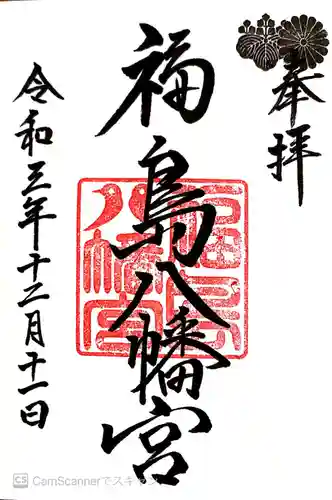 奉拝
福島八幡宮
令和三年十二月十一日
CS CamScannerでスキャン